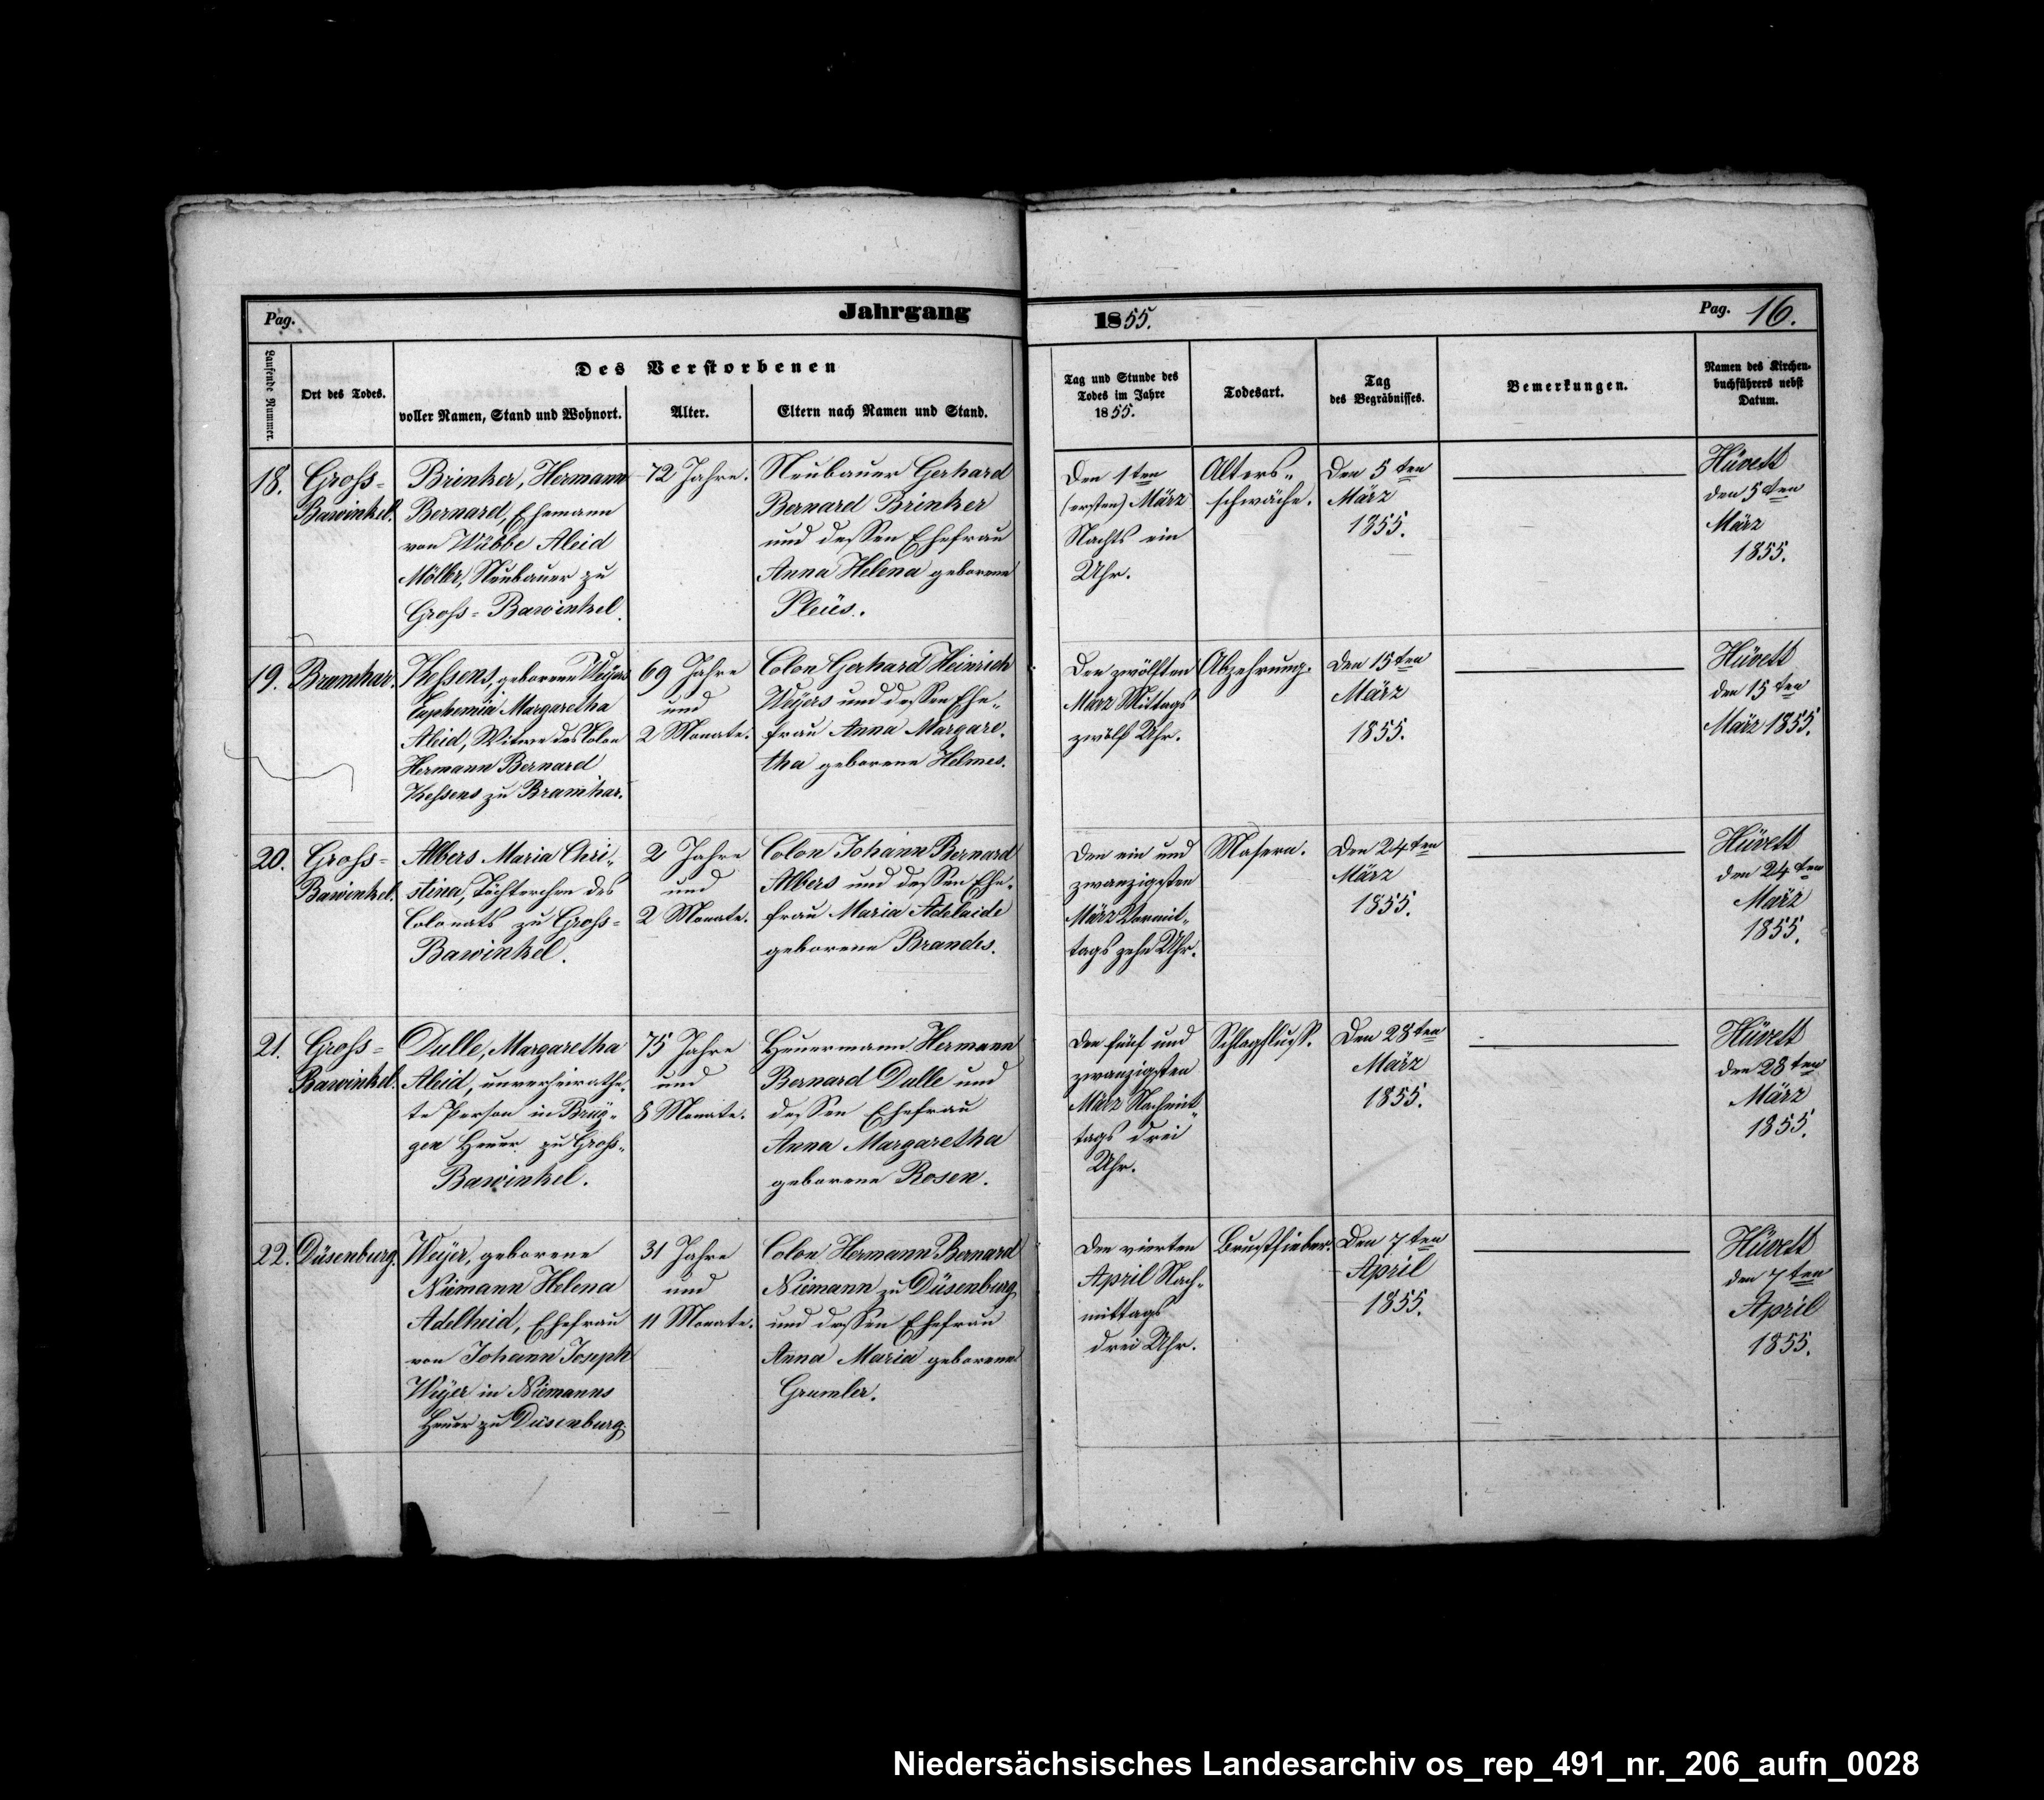 Pag.
Jahrgang
1855.
Pag. 16.
Laufende Nummer.
Ort des Todes.
Des Verstorbenen
voller Namen, Stand und Wohnort.
Alter.
Eltern nach Namen und Stand.
Tag und Stunde des
Todes im Jahre
1855.
Todesart.
Tag
des Begräbnisses.
Bemerkungen.
Namen des Kirchen-
buchführers nebst
Datum.
18.
Groß=
Bawinkel.
Brinker, Hermann
Bernard, Ehemann
von Wübbe Aleid
Möller, Neubauer zu
Groß=Bawinkel.
72 Jahre.
Neubauer Gerhard
Bernard Brinker
und dessen Ehefrau
Anna Helena geborene
Pleus.
Den 1ten
(ersten) März
Nachts ein
Uhr.
Alters-
schwäche.
Den 5ten
März
1855.
Hüvett
den 5ten
März
1855.
19.
Bramhar.
Kessens, geborene Weÿers
Euphemia Margaretha
Aleid, Witwe des Colon
Hermann Bernard
Kessens zu Bramhar.
69 Jahre
und
2 Monate.
Colon Gerhard Heinrich
Weÿers und dessen Ehe-
frau Anna Margare-
tha geborene Helmes.
Den zwölften
März Mittags
zwölf Uhr.
Abzehrung.
Den 15ten
März
1855.
Hüvett
den 15ten
März 1855.
20.
Groß=
Bawinkel.
Albers Maria Chri-
stina, Töchterchen des
Colonats zu Groß=
Bawinkel.
2 Jahre
und
2 Monate.
Colon Johann Bernard
Albers und dessen Ehe-
frau Maria Adelaide
geborene Brandes.
Den ein und
zwanzigsten
März Vormit-
tags zehn Uhr.
Masern.
Den 24ten
März
1855.
Hüvett
den 24ten
März
1855.
21.
Groß=
Bawinkel.
Dulle, Margaretha
Aleid, unverheirathe-
te Person in Brüg-
gen Heuer zu Groß-
Bawinkel.
75 Jahre
und
8 Monate.
Heuermann Hermann
Bernard Dulle und
dessen Ehefrau
Anna Margaretha
geborene Rosen.
Den fünf und
zwanzigsten
März Nachmit-
tags drei
Uhr.
Schlagfluß.
Den 28ten
März
1855.
Hüvett
den 28ten
März
1855.
22.
Düsenburg.
Weÿer, geborene
Niemann Helena
Adelheid, Ehefrau
von Johann Joseph
Weÿer in Niemanns
Heuer zu Düsenburg.
31 Jahre
und
11 Monate.
Colon Hermann Bernard
Niemann zu Düsenburg
und dessen Ehefrau
Anna Maria geborene
Gramler.
Den vierten
April Nach-
mittags
drei Uhr.
Brustfieber.
Den 7ten
April
1855.
Hüvett
den 7ten
April
1855.
Niedersächsisches Landesarchiv os_rep_491_nr._206_aufn_0028